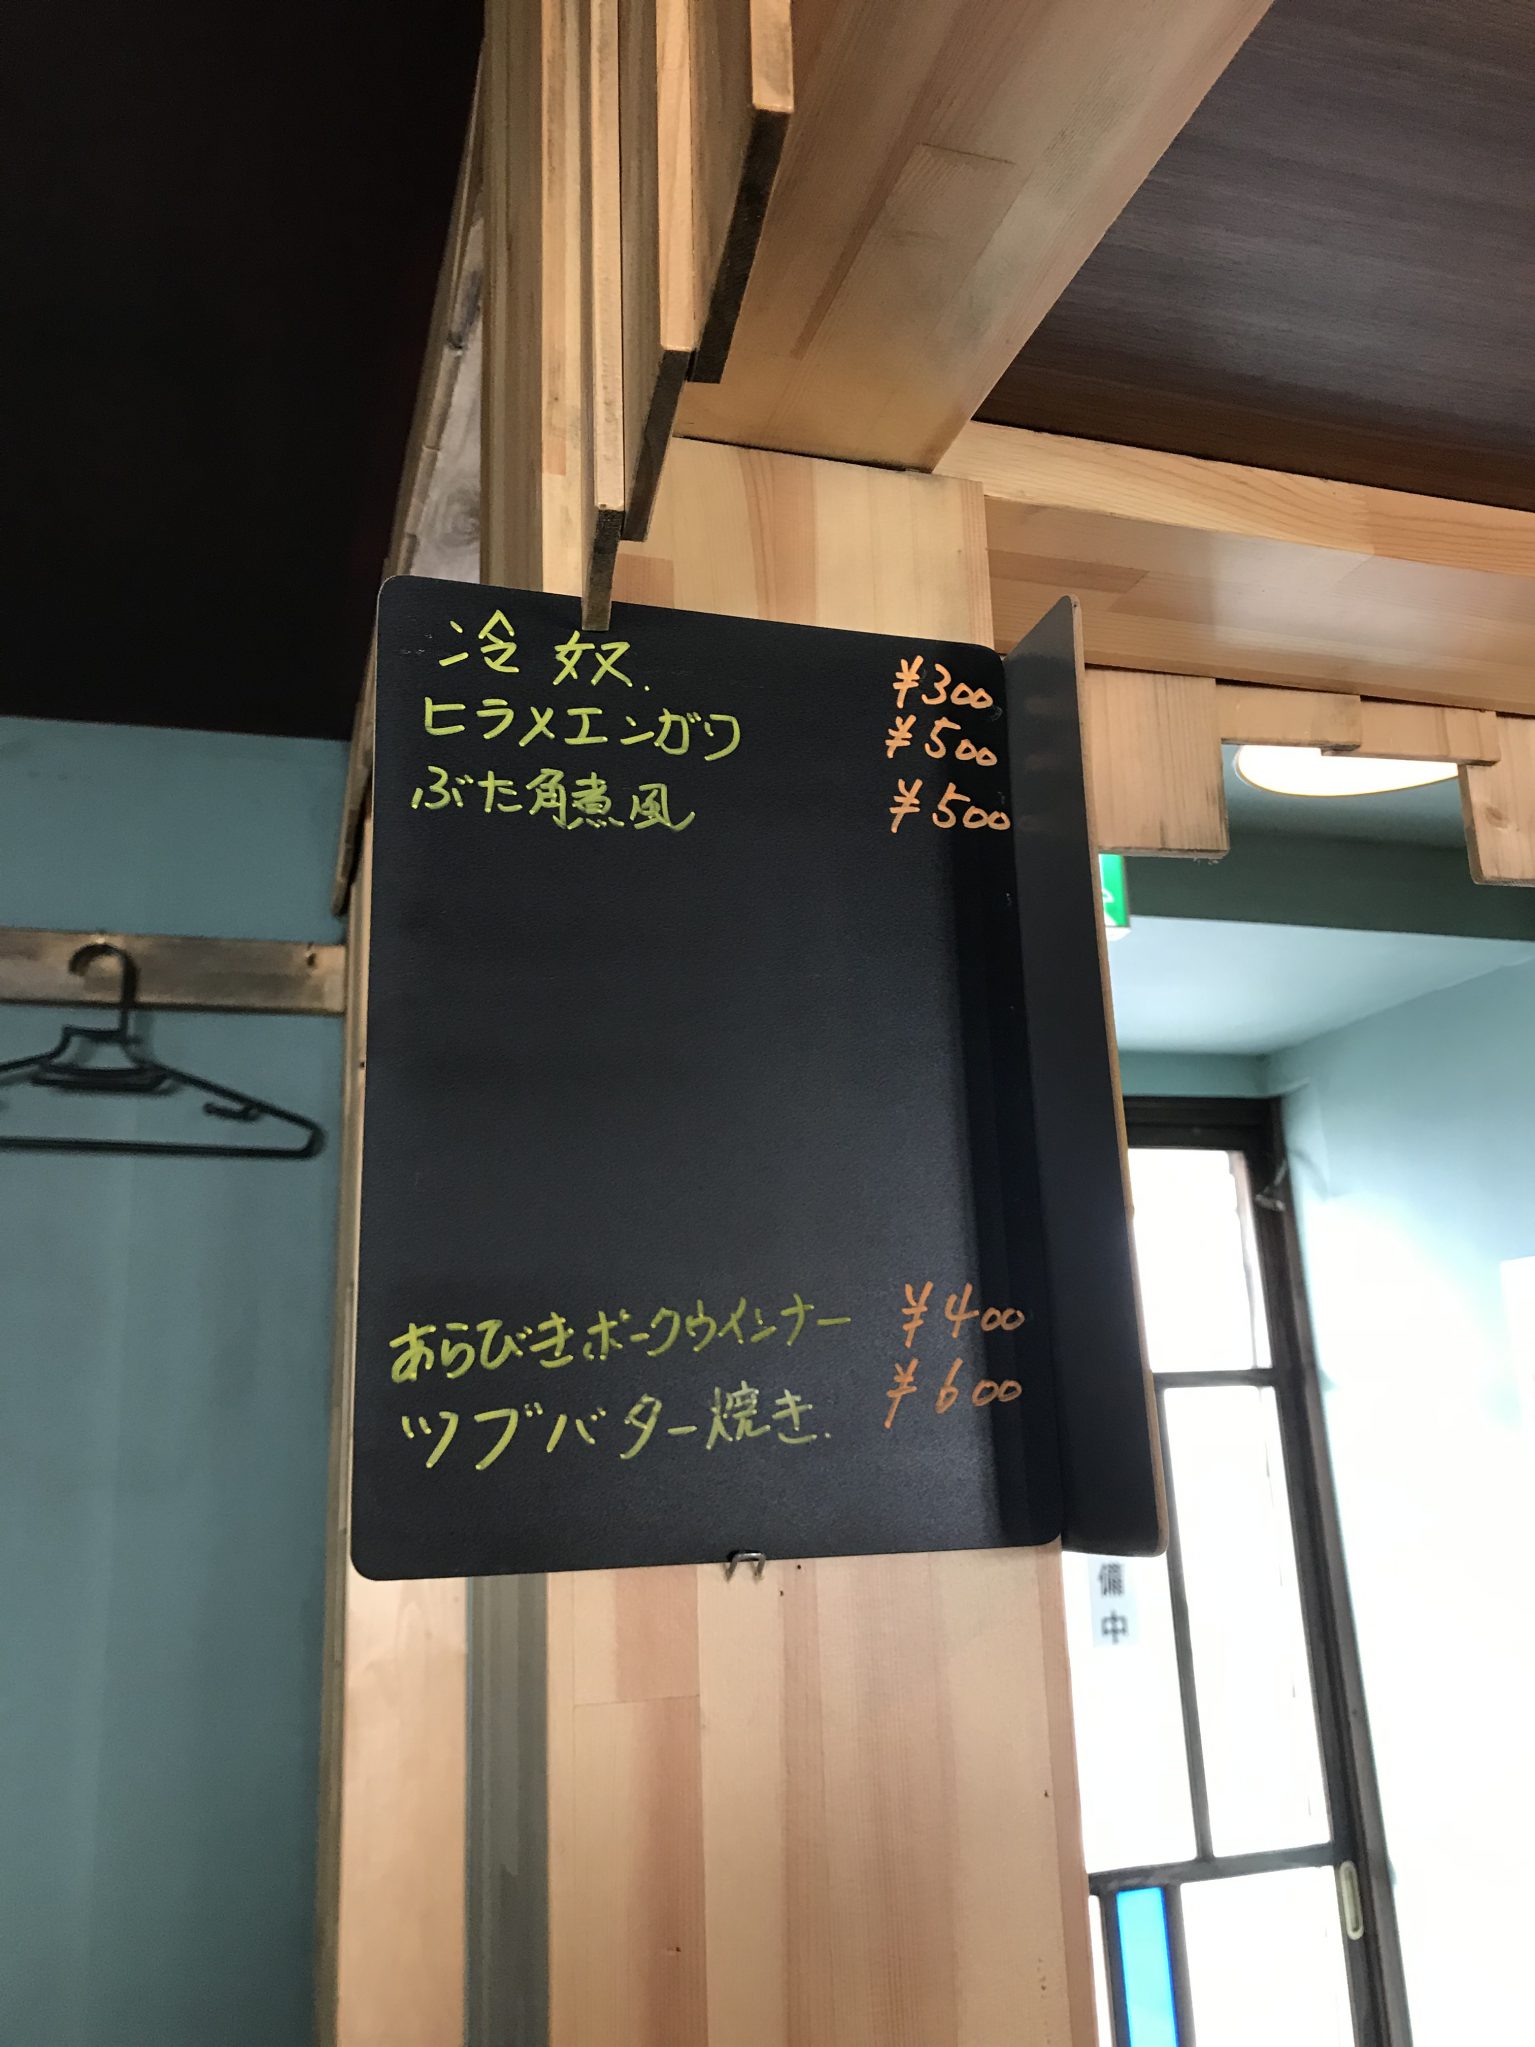 冷奴. ¥300
ヒラメエンガワ ¥500
ぶた角煮風 ¥500
あらびきポークウインナー ¥400
ツブバター焼き. ¥600
備中